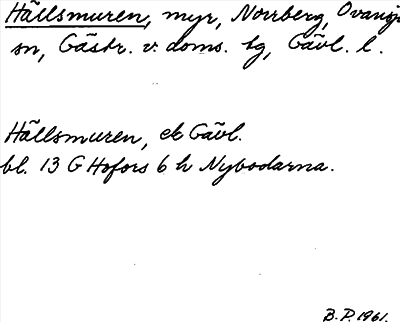 Hällsmuren, myr, Norrberg, Ovansjö
sn, Gästr. v. doms. tg, Gävl. l.
Hällsmuren, ek Gävl.
bl. 13 G Hofors 6 h Nybodarna.
B.P. 1961.